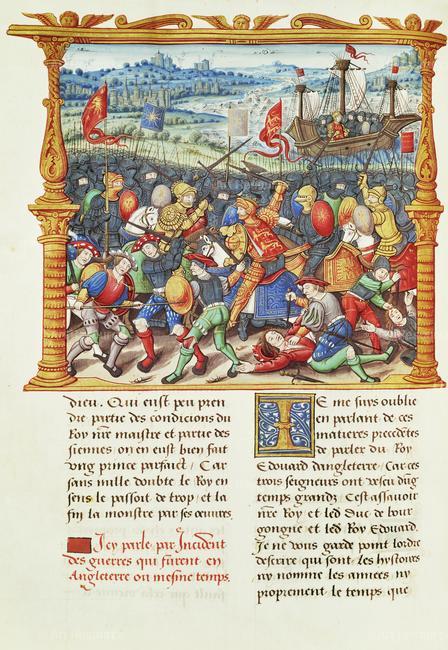 dieu. Qui eust peu pren
dre partie des conditions du
Roy nre maistre et partie des
siennes, on en eust bien fait
vng prince parfaict / Car
sans mille doubte le Roy en
sens le passoit de trop, et la
fin la monstre par ses œuvres.
Icy parle par Incident
des guerres qui furent en
Angleterre ou mesme temps.
IE me suys oublie
en parlant de ces
matieres precedetes
de parler du Roy
Edouard dangleterre / Car ces
trois seigneurs ont vescu dung
temps grandz / Cest assauoir
nre Roy et led Duc de bour
gongne et led Roy Edouard.
Je ne vous garde point lordre
descrire qui sont les hystoires
ny nomme les annees ny
proprement le temps que